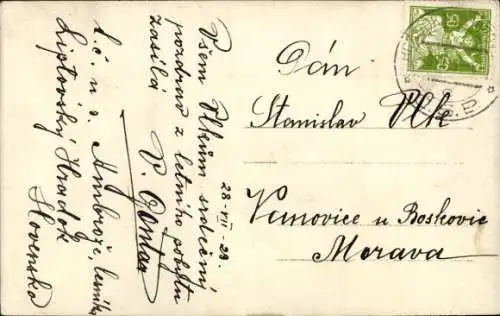 28.VII.23.
Všem Vlkům srdečný
pozdrav z letního pobytu
zasílá
V. Gottar
t. č. u s. Ambrože, lesníka
Liptovský Hradok
Slovensko
Pán
Stanislav Vlk
Vanovice u Boskovic
Morava
50